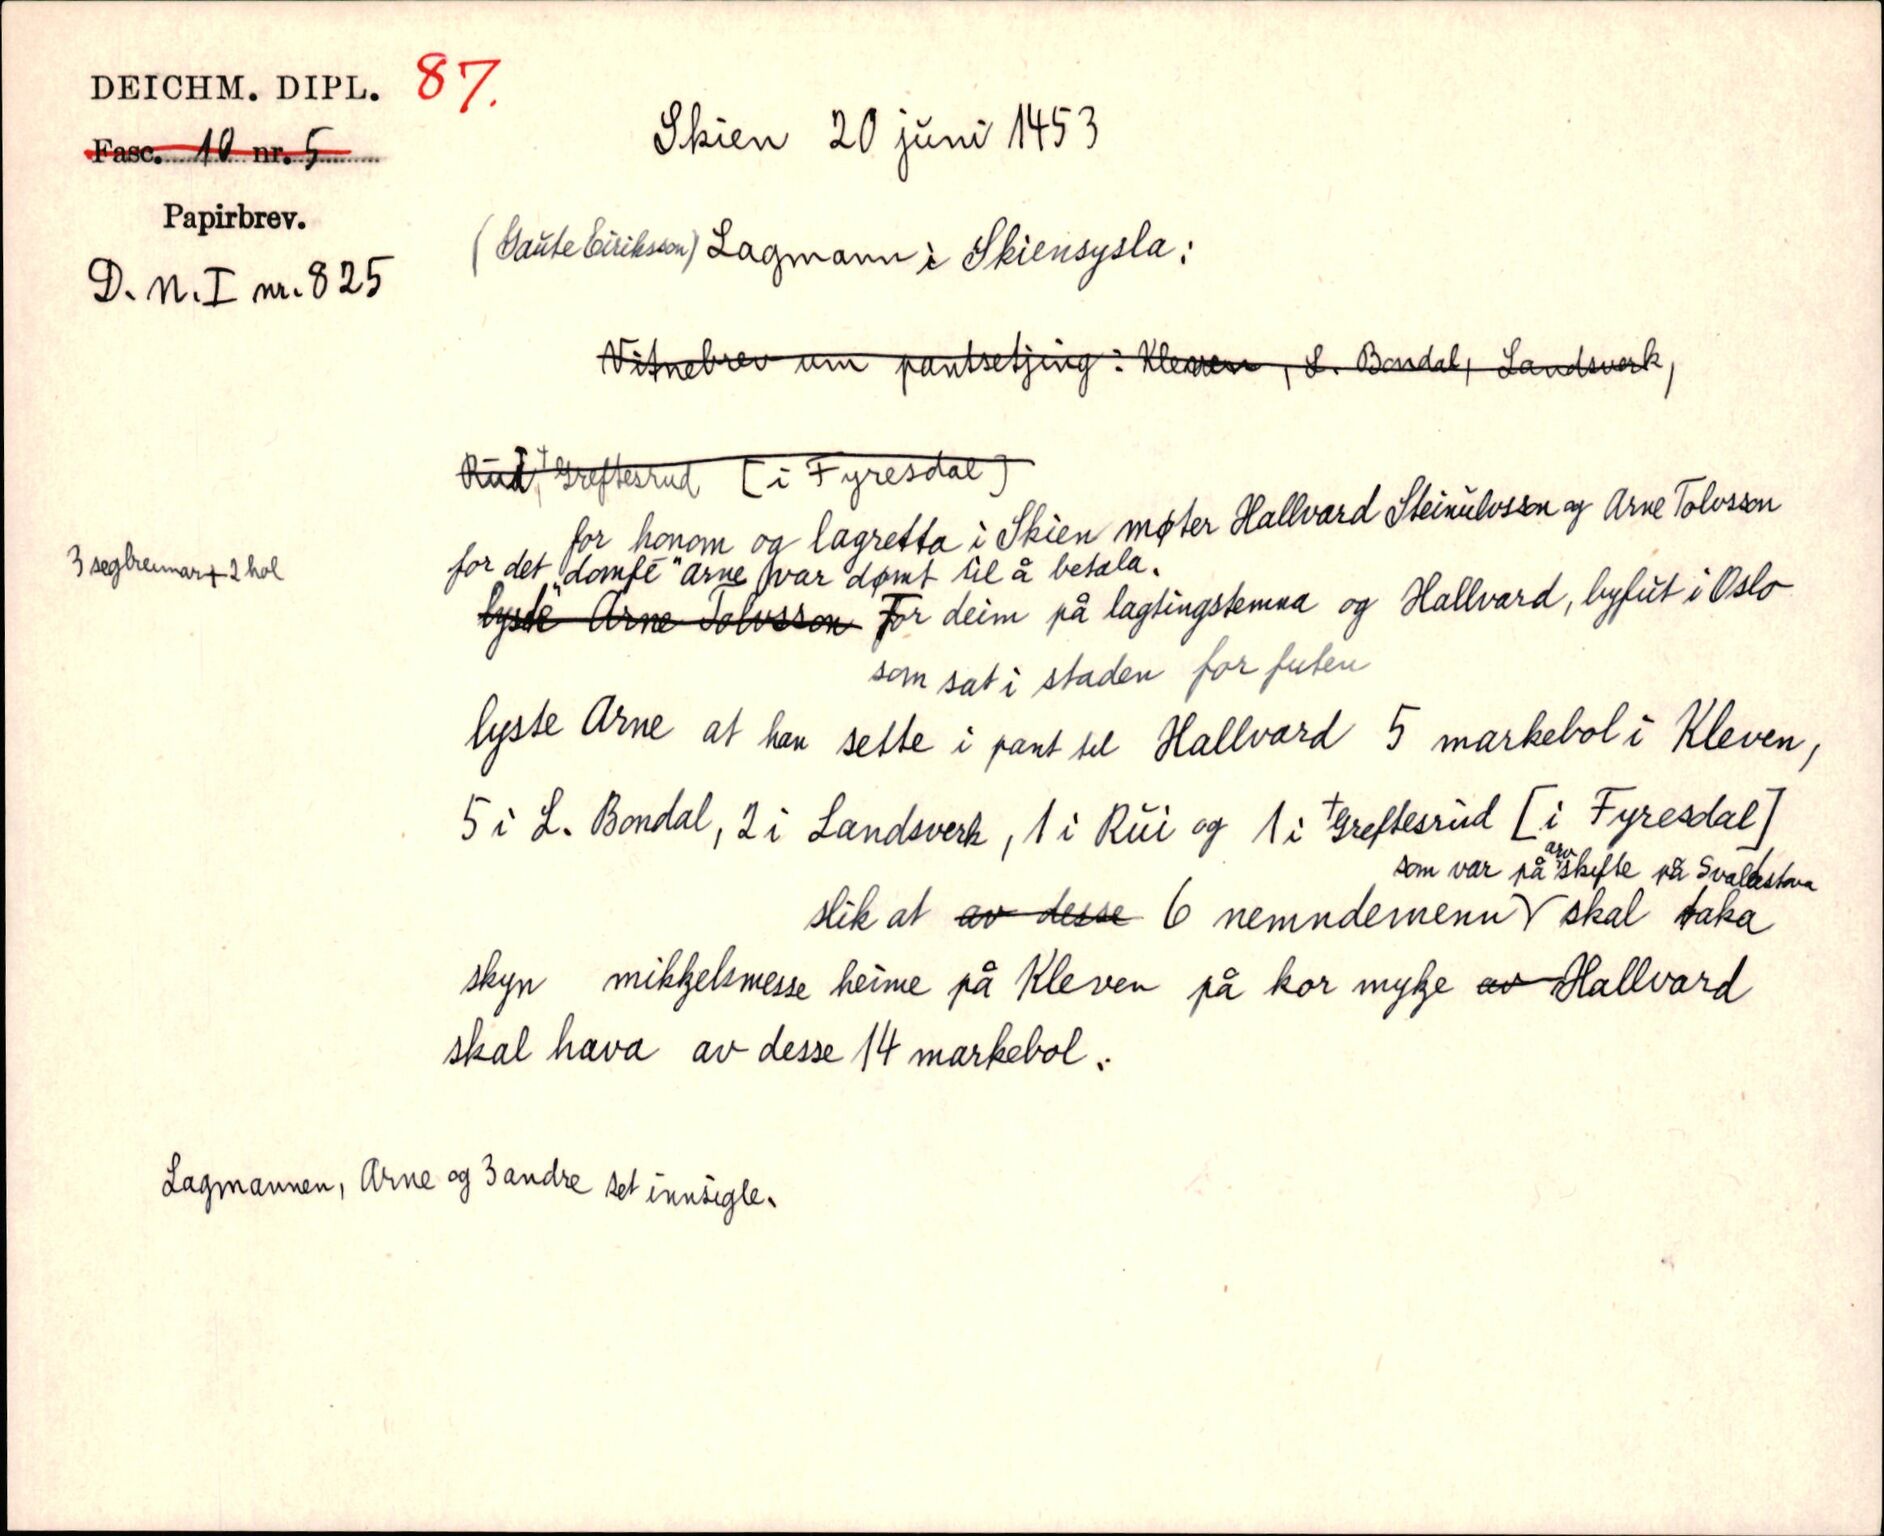 DEICHM. DIPL. 87.
Fasc. 10 nr. 5
Papirbrev.
D. N. I nr. 825
Skien 20 juni 1453
(Gaute Eiriksson) Lagmann i Skiensysla:
Vitnebrev um pantsetjing: Kleven, L. Bondal, Landsverk,
Rui, †Greftesrud [i Fyresdal]
for honom og lagretta i Skien møter Hallvard Steinulvsson og Arne Tolvsson
3 segbremar + 2 hol
for det "domfé" Arne var dømt til å betala.
lyste Arne Tolvsson For deim på lagtingstemna og Hallvard, byfut i Oslo
som sat i staden for futen
lyste Arne at han sette i pant til Hallvard 5 markebol i Kleven,
5 i L. Bondal, 2 i Landsverk, 1 i Rui og 1 i †Greftesrud [i Fyresdal]
som var på arvskifte på Svalastova
slik at av desse 6 nemndemenn skal taka
skyn mikkjelsmesse heime på Kleven på kor mykje av Hallvard
skal hava av desse 14 markebol.
Lagmannen, Arne og 3 andre set innsigle.